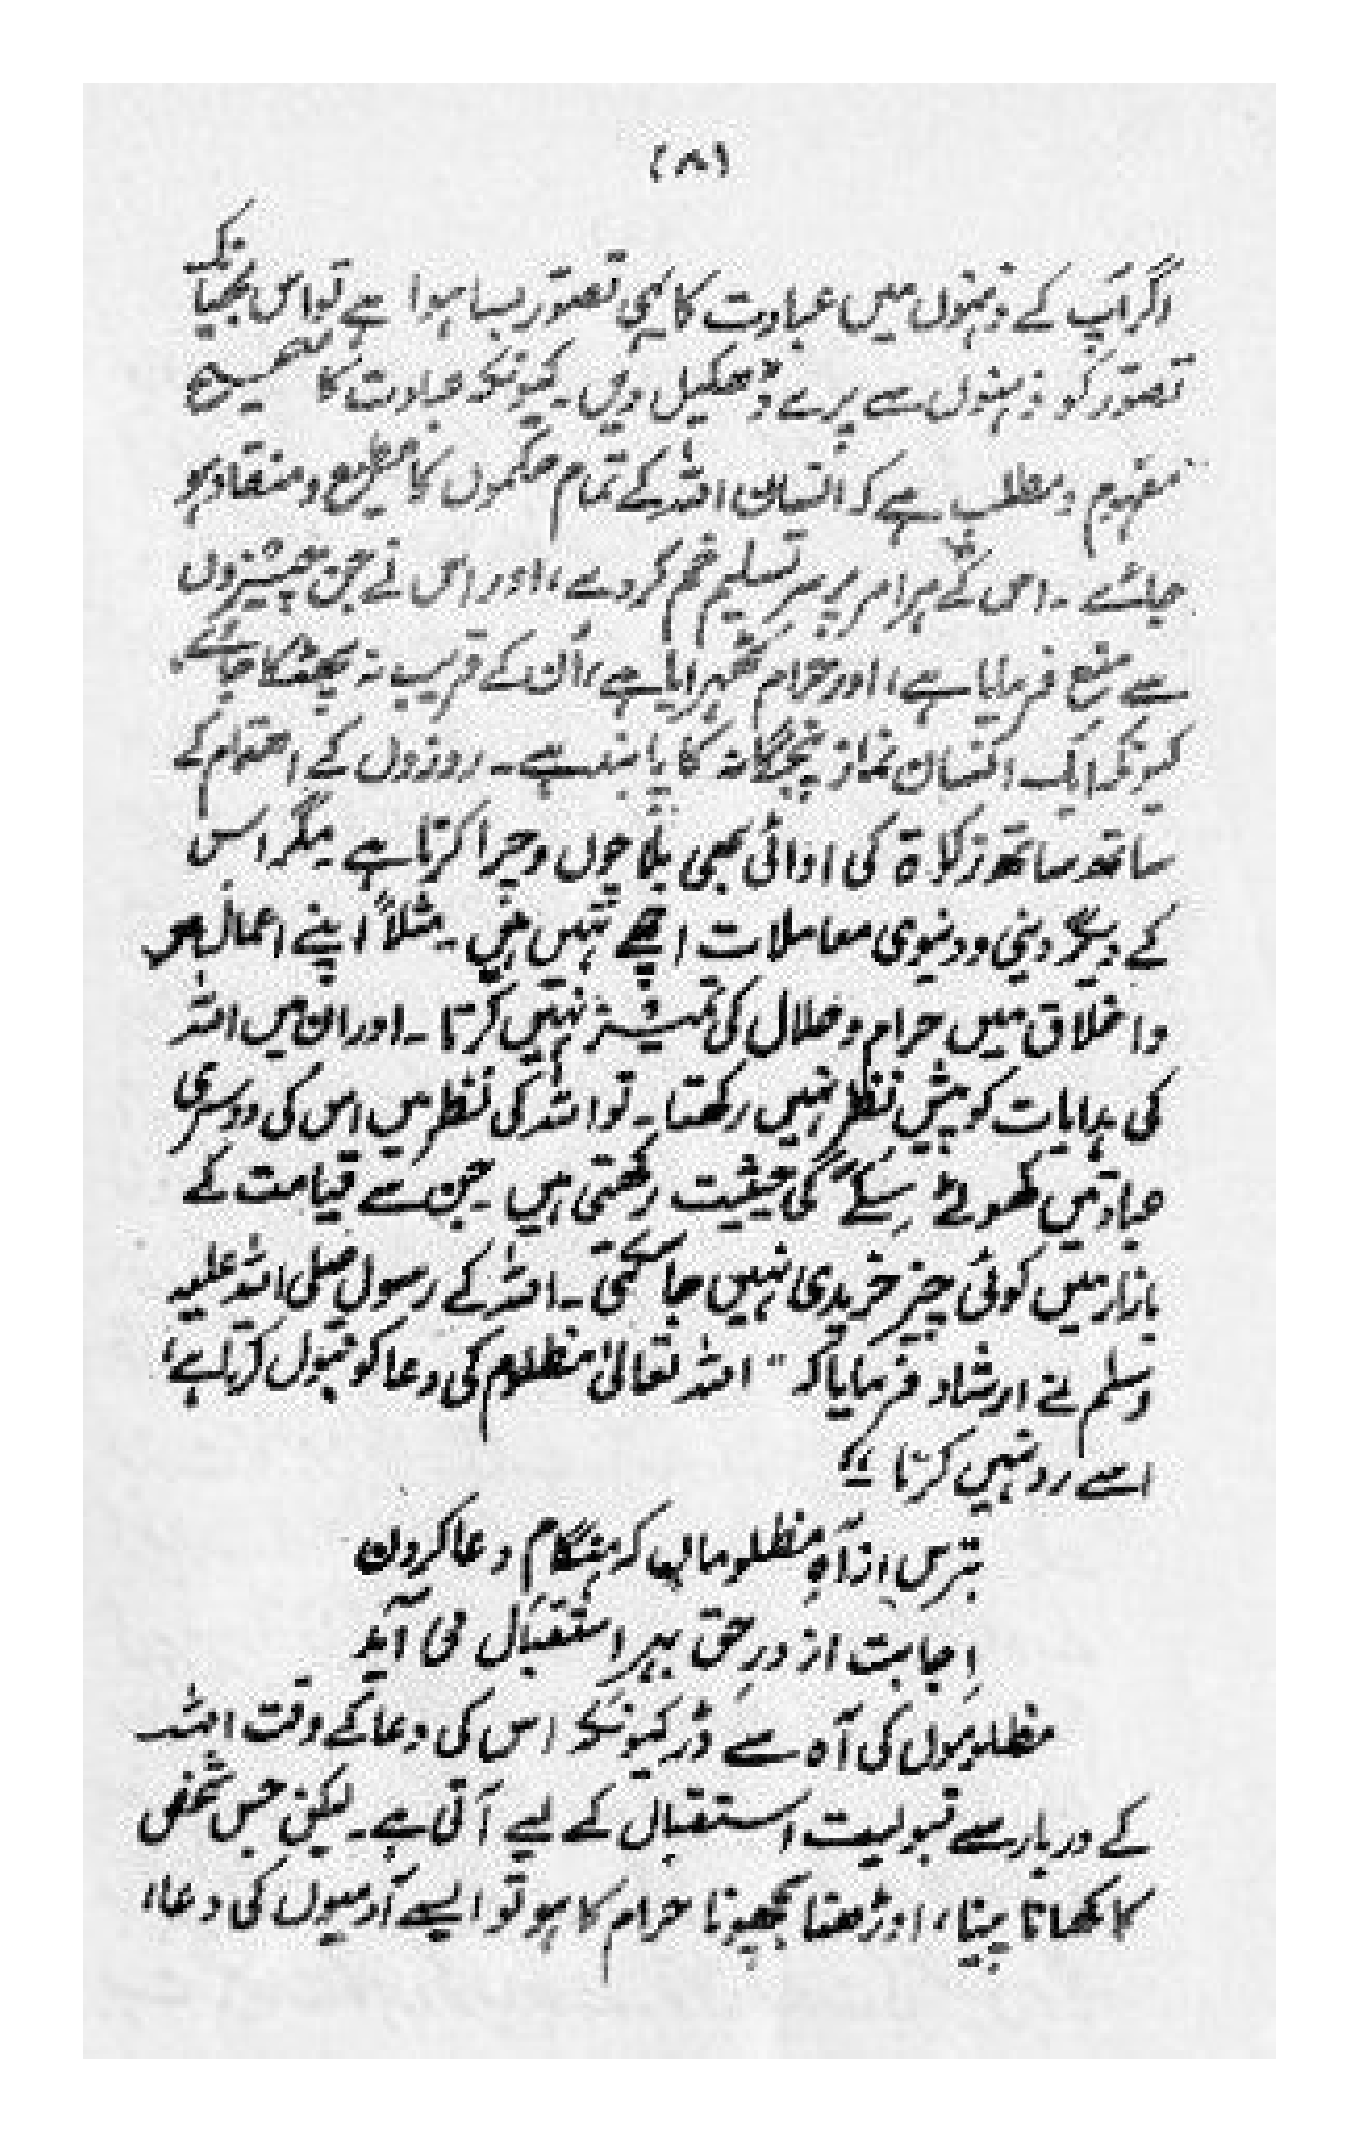 (۸)
اگر آپ کے ذہنوں میں عبادت کا یہی تصور بسا ہوا ہے تو اس بھیانک
تصور کو ذہنوں سے پرے دھکیل دیں۔ کیونکہ عبادت کا صحیح
مفہوم و مطلب ہے کہ انسان اللہ کے تمام حکموں کا مطیع و منقاد ہو
جائے۔ اس کے ہر امر پر سر تسلیم خم کر دے، اور اس نے جن چیزوں
سے منع فرمایا ہے، اور حرام ٹھہرایا ہے، اُن کے قریب نہ پھٹکا جائے،
کیونکہ ایک انسان نماز پنجگانہ کا پابند ہے۔ روزوں کے اہتمام کے
ساتھ ساتھ زکوٰۃ کی ادائی بھی بلا چوں و چرا کرتا ہے مگر اس
کے دیگر دینی و دنیوی معاملات اچھے نہیں ہیں۔ مثلاً اپنے اعمال
و اخلاق میں حرام و حلال کی تمیز نہیں کرتا۔ اور ان میں اللہ
کی ہدایات کو پیش نظر نہیں رکھتا۔ تو اللہ کی نظر میں اس کی دوسری
عبادتیں کھوٹے سِکّے کی حیثیت رکھتی ہیں۔ جن سے قیامت کے
بازار میں کوئی چیز خریدی نہیں جا سکتی۔ اللہ کے رسول صلی اللہ علیہ
وسلم نے ارشاد فرمایا کہ "اللہ تعالیٰ مظلوم کی دعا کو قبول کرتا ہے،
اسے رد نہیں کرتا۔"
بترس از آہِ مظلوماں کہ ہنگام دعا کردن
اِجابت از درِ حق بہرِ استقبال می آید
مظلوموں کی آہ سے ڈر کیونکہ اس کی دعا کے وقت اللہ
کے دربار سے قبولیت استقبال کے لیے آتی ہے۔ لیکن جس شخص
کا کھانا پینا، اوڑھنا بچھونا حرام کا ہو تو ایسے آدمیوں کی دعا،